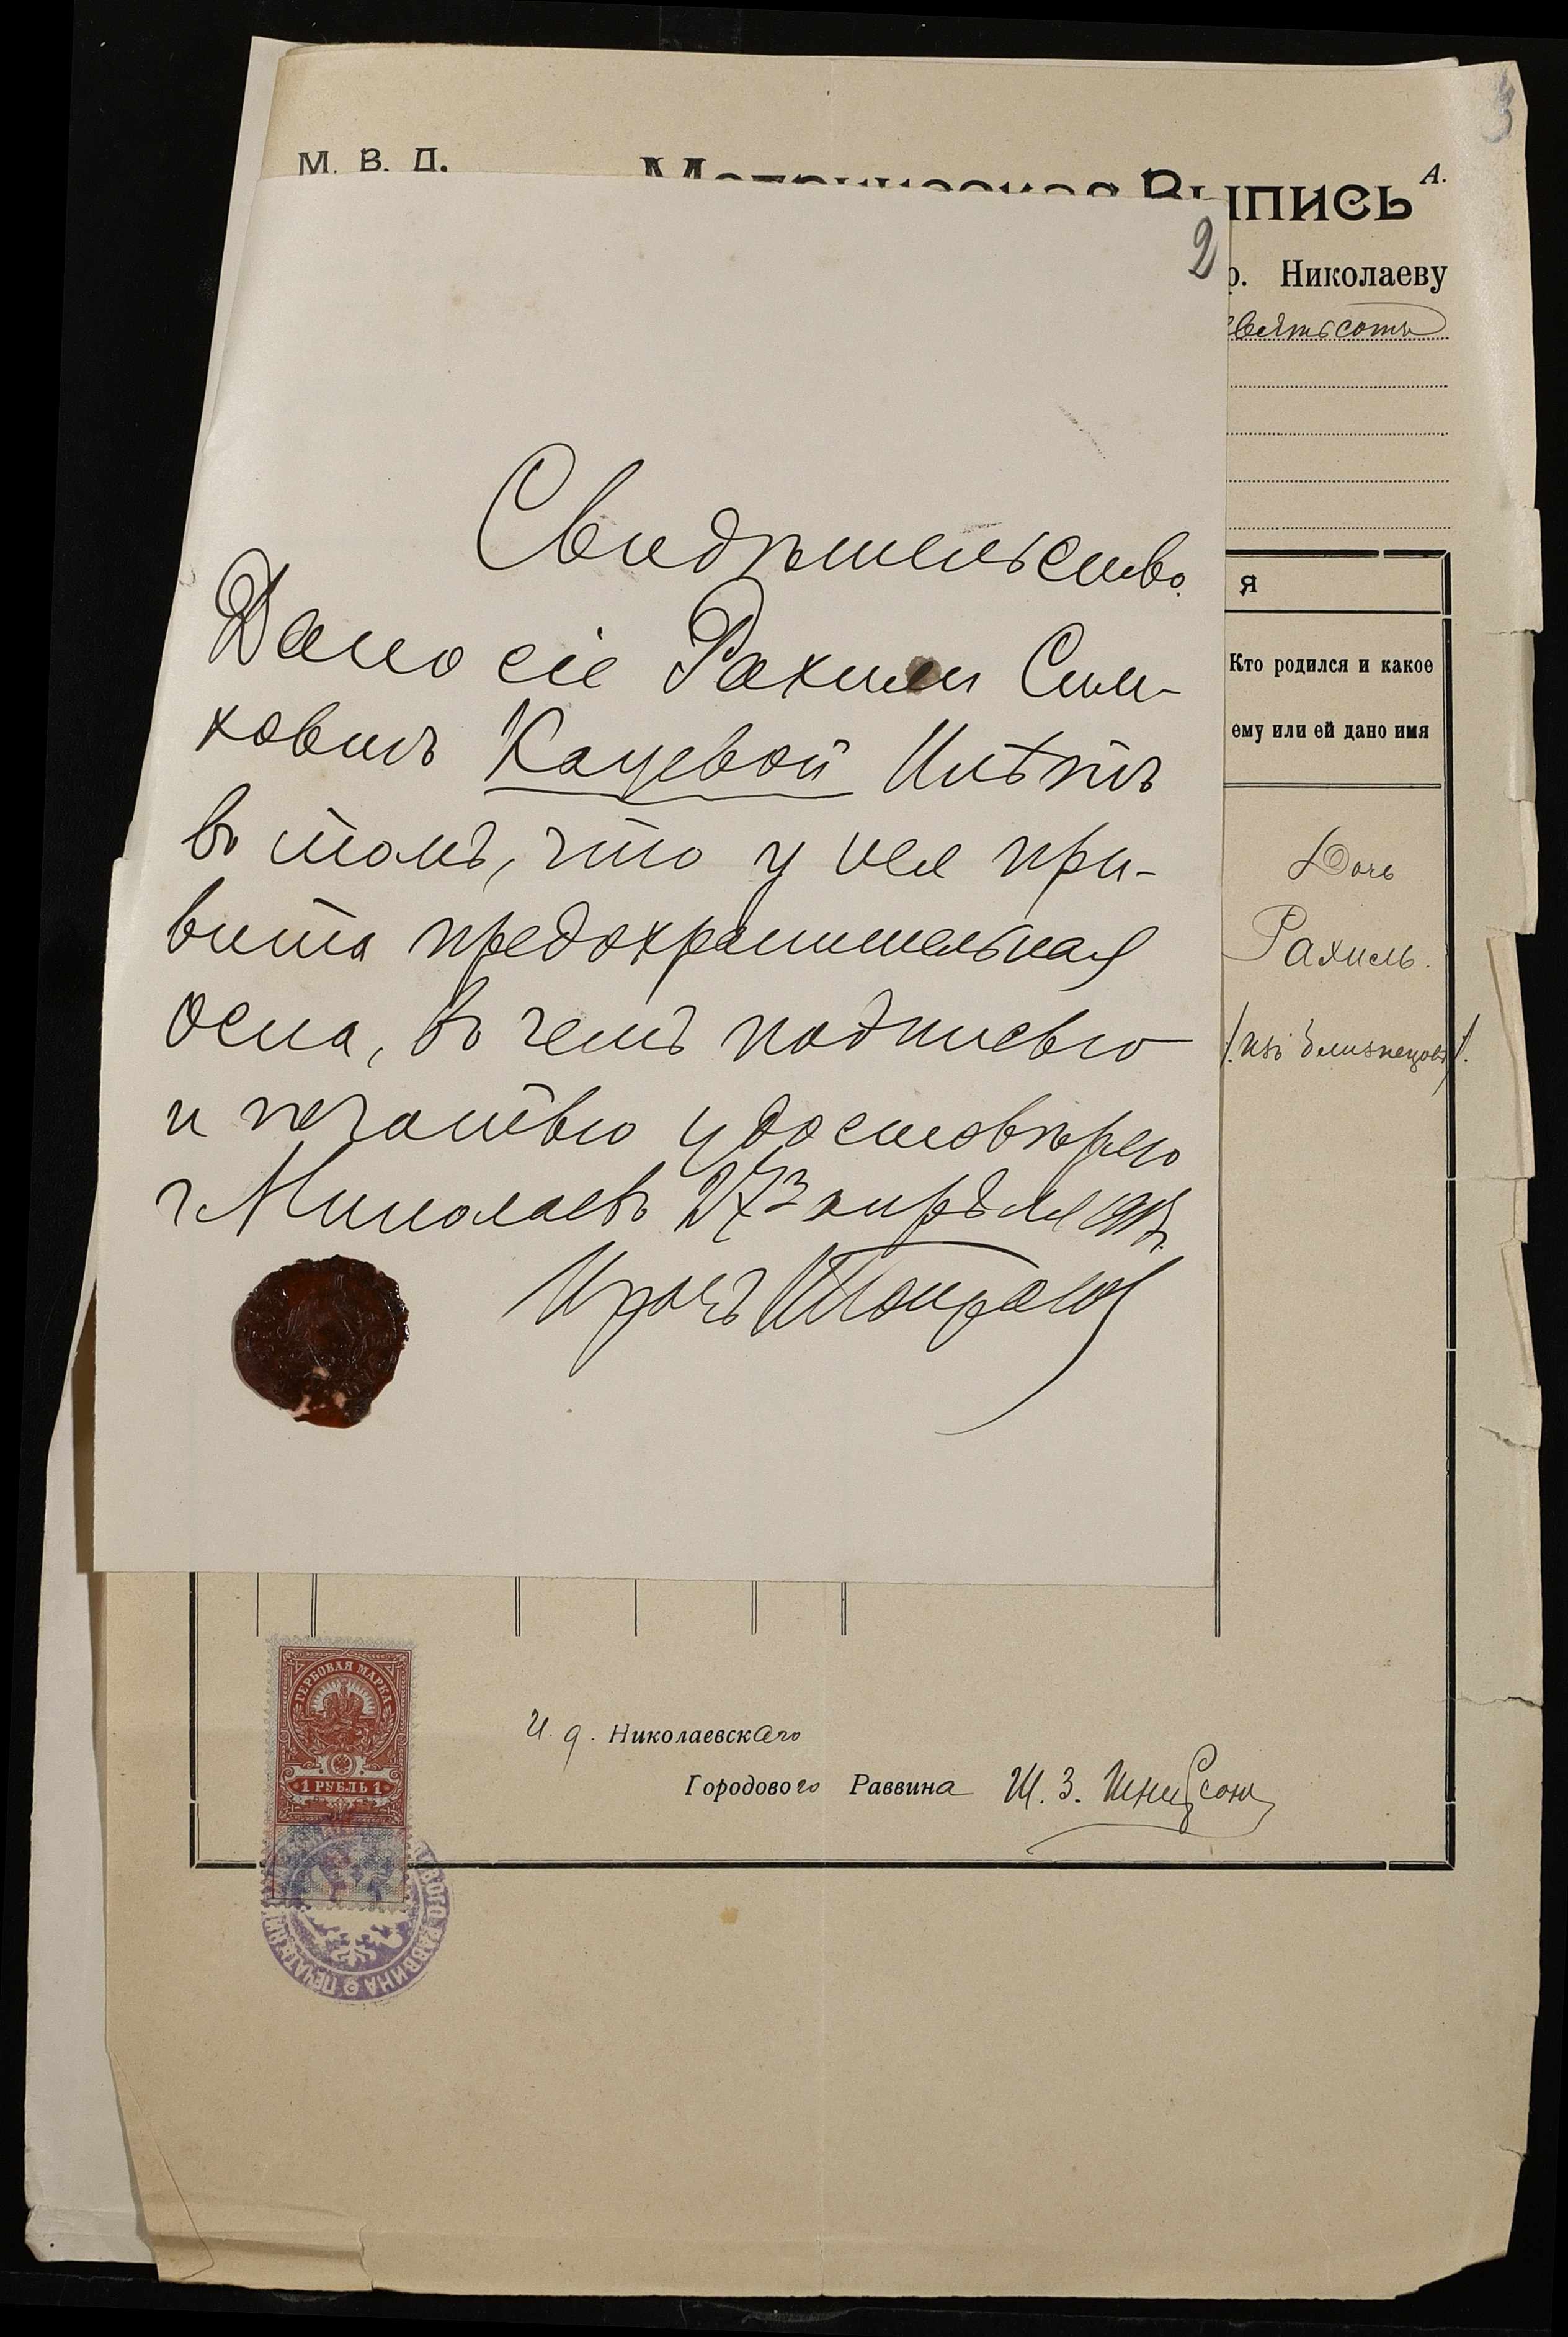 3
М. В. Д.
Метрическая Выпись
А.
2
р. Николаеву
девятьсотъ
Свидѣтельство
Дано сіе Рахили Сим-
ховнѣ Кацевой
въ томъ, что у нея при-
вита предохранительная
оспа, въ чемъ подписью
и печатью удостовѣряю
г Николаевъ 27 апрѣля
Врачъ
Я
Кто родился и какое
ему или ей дано имя
Дочь
Рахиль.
/изъ близнецовъ/.
ГЕРБОВАЯ МАРКА
1 РУБЛЬ 1
И. д. Николаевскаго
Городового Раввина Ш. З. Шнеерсонъ
ПЕЧАТЬ РАВВИНА